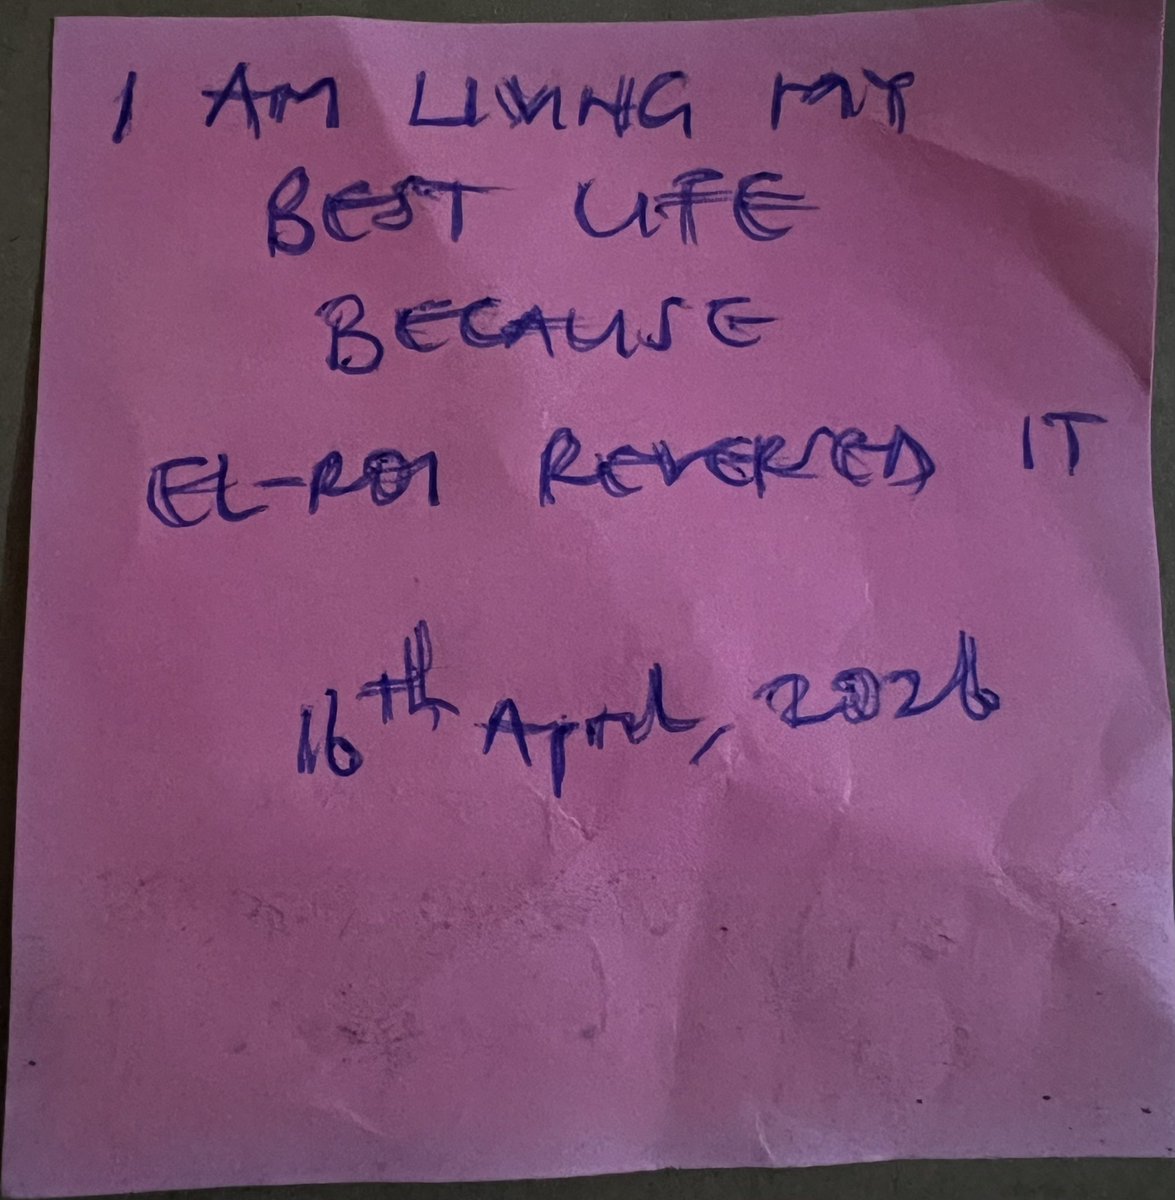 I AM LIVING MY
BEST LIFE
BECAUSE
EL-ROI REVERSED IT
16th April, 2026